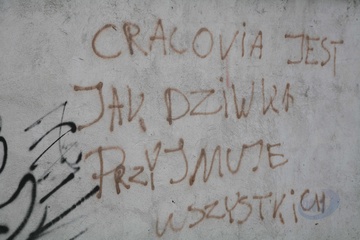 CRACOVIA JEST
JAK DZIWKA
PRZYJMUJE
WSZYSTKiCH